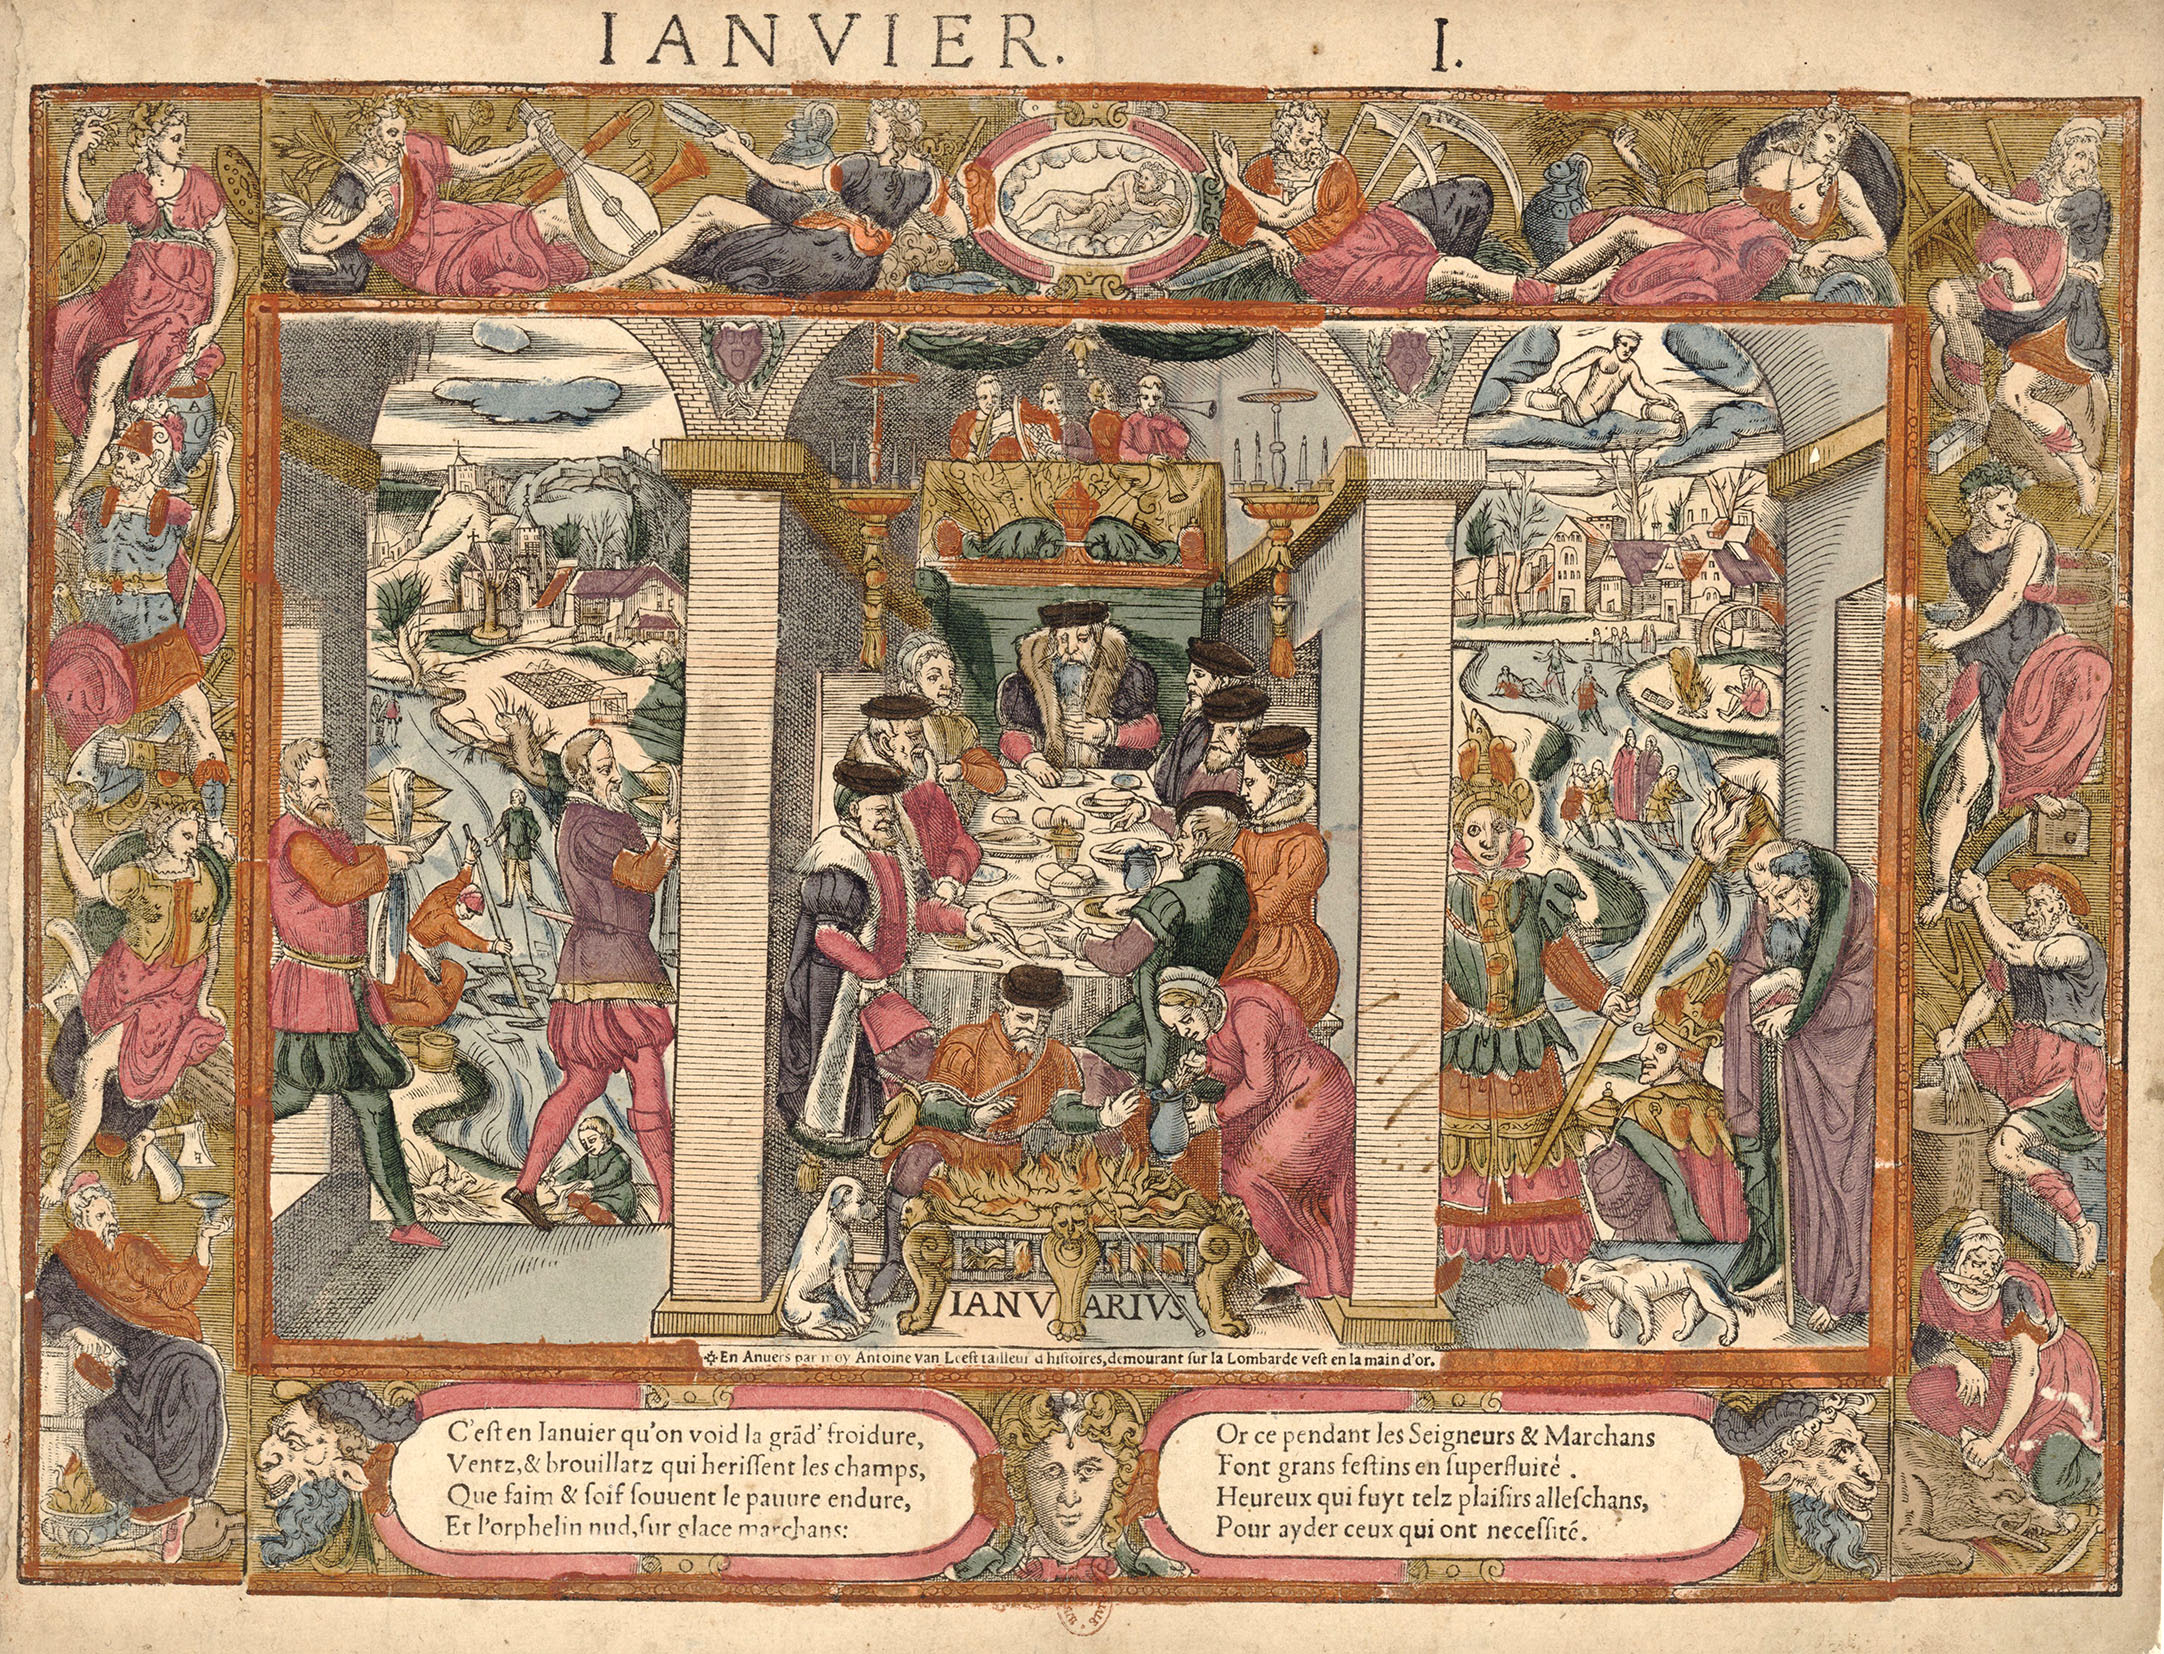 IANVIER. I.
IANVARIVS
✣ En Anuers par moy Antoine van Leest tailleur d'histoires, demourant sur la Lombarde vest en la main d'or.
C'est en Ianuier qu'on void la grãd' froidure,
Ventz, & brouillatz qui herissent les champs,
Que faim & soif souuent le pauure endure,
Et l'orphelin nud, sur glace marchans:
Or ce pendant les Seigneurs & Marchans
Font grans festins en superfluité.
Heureux qui fuyt telz plaisirs alleschans,
Pour ayder ceux qui ont necessité.